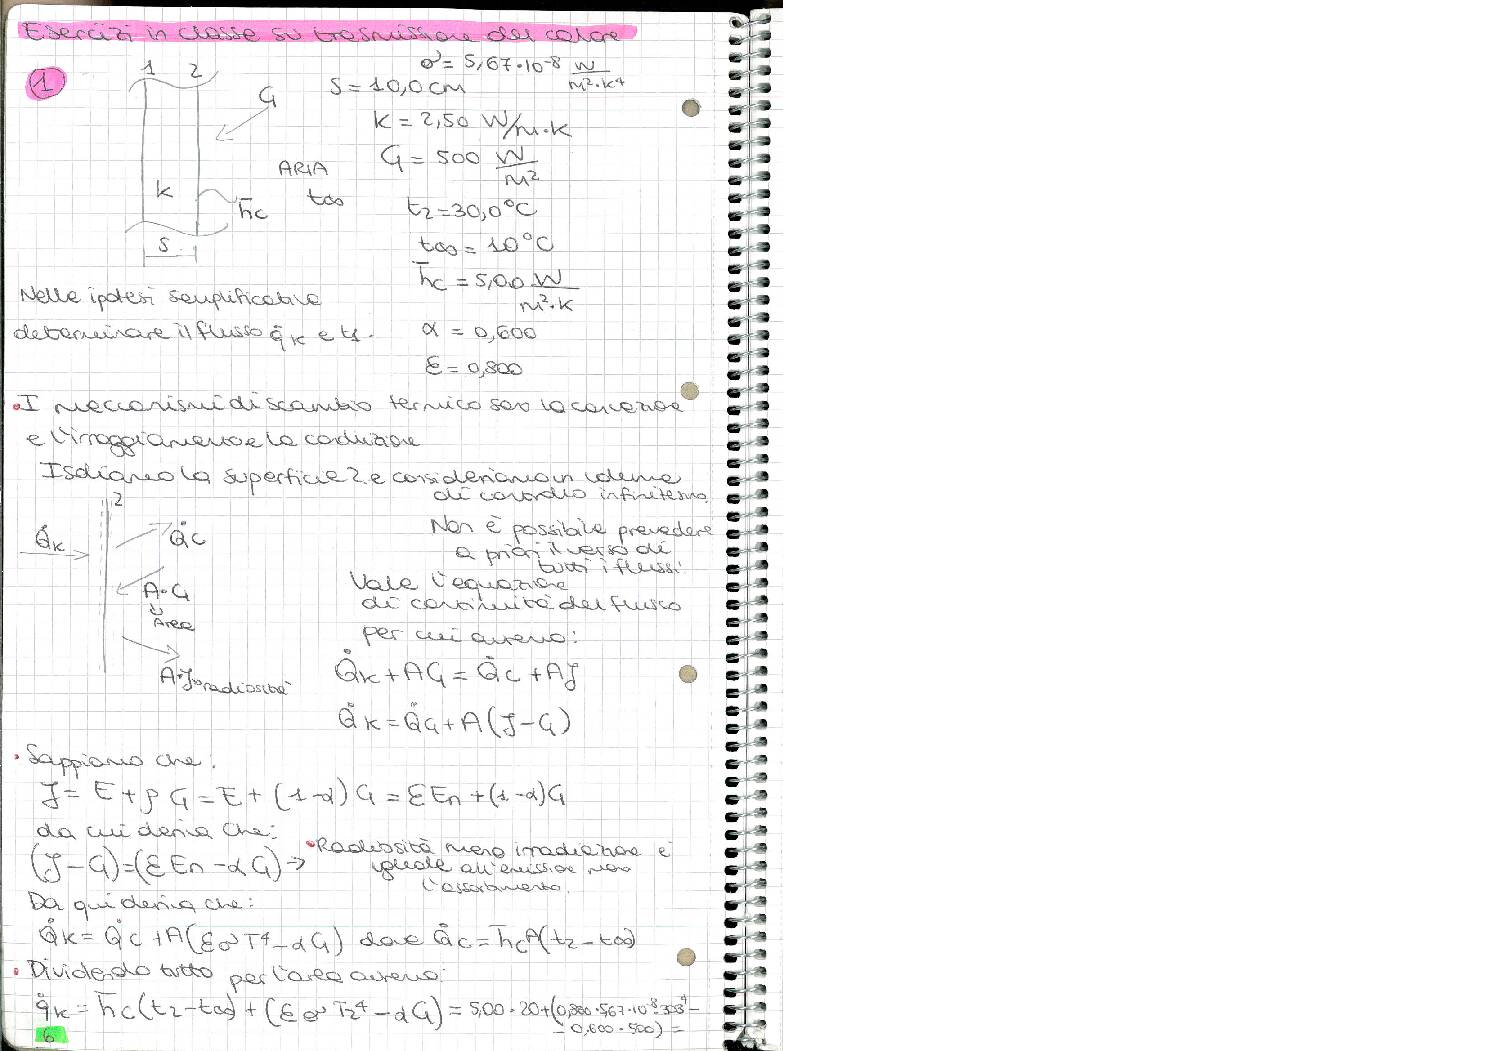 Esercizi in classe su trasmissione del calore
1
1 2
G
k
h̄c
S
ARIA
t∞
σ = 5,67·10⁻⁸ W/m²·K⁴
S = 10,0 cm
K = 2,50 W/m·K
G = 500 W/m²
t2 = 30,0°C
t∞ = 10°C
h̄c = 5,00 W/m²·K
α = 0,600
ε = 0,800
Nelle ipotesi semplificative
determinare il flusso q̇k e t1.
• I meccanismi di scambio termico sono la convezione
e l'irraggiamento e la conduzione
Isoliamo la superficie 2 e consideriamo un volume
di controllo infinitesimo.
2
Q̇k
Q̇c
A·G
Area
A·J → radiosità
Non è possibile prevedere
a priori il verso di
tutti i flussi.
Vale l'equazione
di continuità del flusso
per cui avremo:
Q̇k + AG = Q̇c + AJ
Q̇k = Q̇G + A(J-G)
• Sappiamo che:
J = E + ρG = E + (1-α)G = εEn + (1-α)G
da cui deriva che:
(J-G) = (εEn - αG) →
• Radiosità meno irradiazione è
uguale all'emissione meno
l'assorbimento.
Da qui deriva che:
Q̇k = Q̇c + A(εσT⁴ - αG) dove Q̇c = h̄cA(t2 - t∞)
• Dividendo tutto per l'area avremo:
q̇k = h̄c(t2 - t∞) + (εσT2⁴ - αG) = 5,00·20 + (0,800·5,67·10⁻⁸·303⁴ -
- 0,600·500) =
6